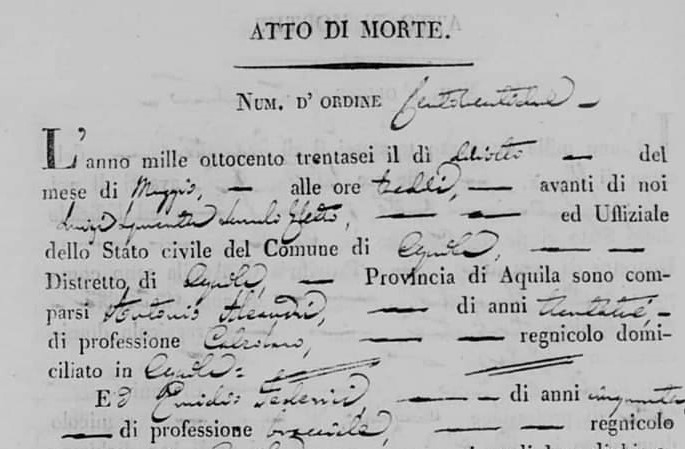 ATTO DI MORTE.
NUM. D' ORDINE centoventidue
L'anno mille ottocento trentasei il dì diciotto del
mese di Maggio, alle ore tredici, avanti di noi
Luigi ed Uffiziale
dello Stato civile del Comune di Aquila,
Distretto di Aquila, Provincia di Aquila sono com-
parsi Antonio Alesandri, di anni trentatré,
di professione Calzolaro, regnicolo domi-
ciliato in Aquila
Ed Emidio Federici, di anni cinquanta
di professione bracciale, regnicolo